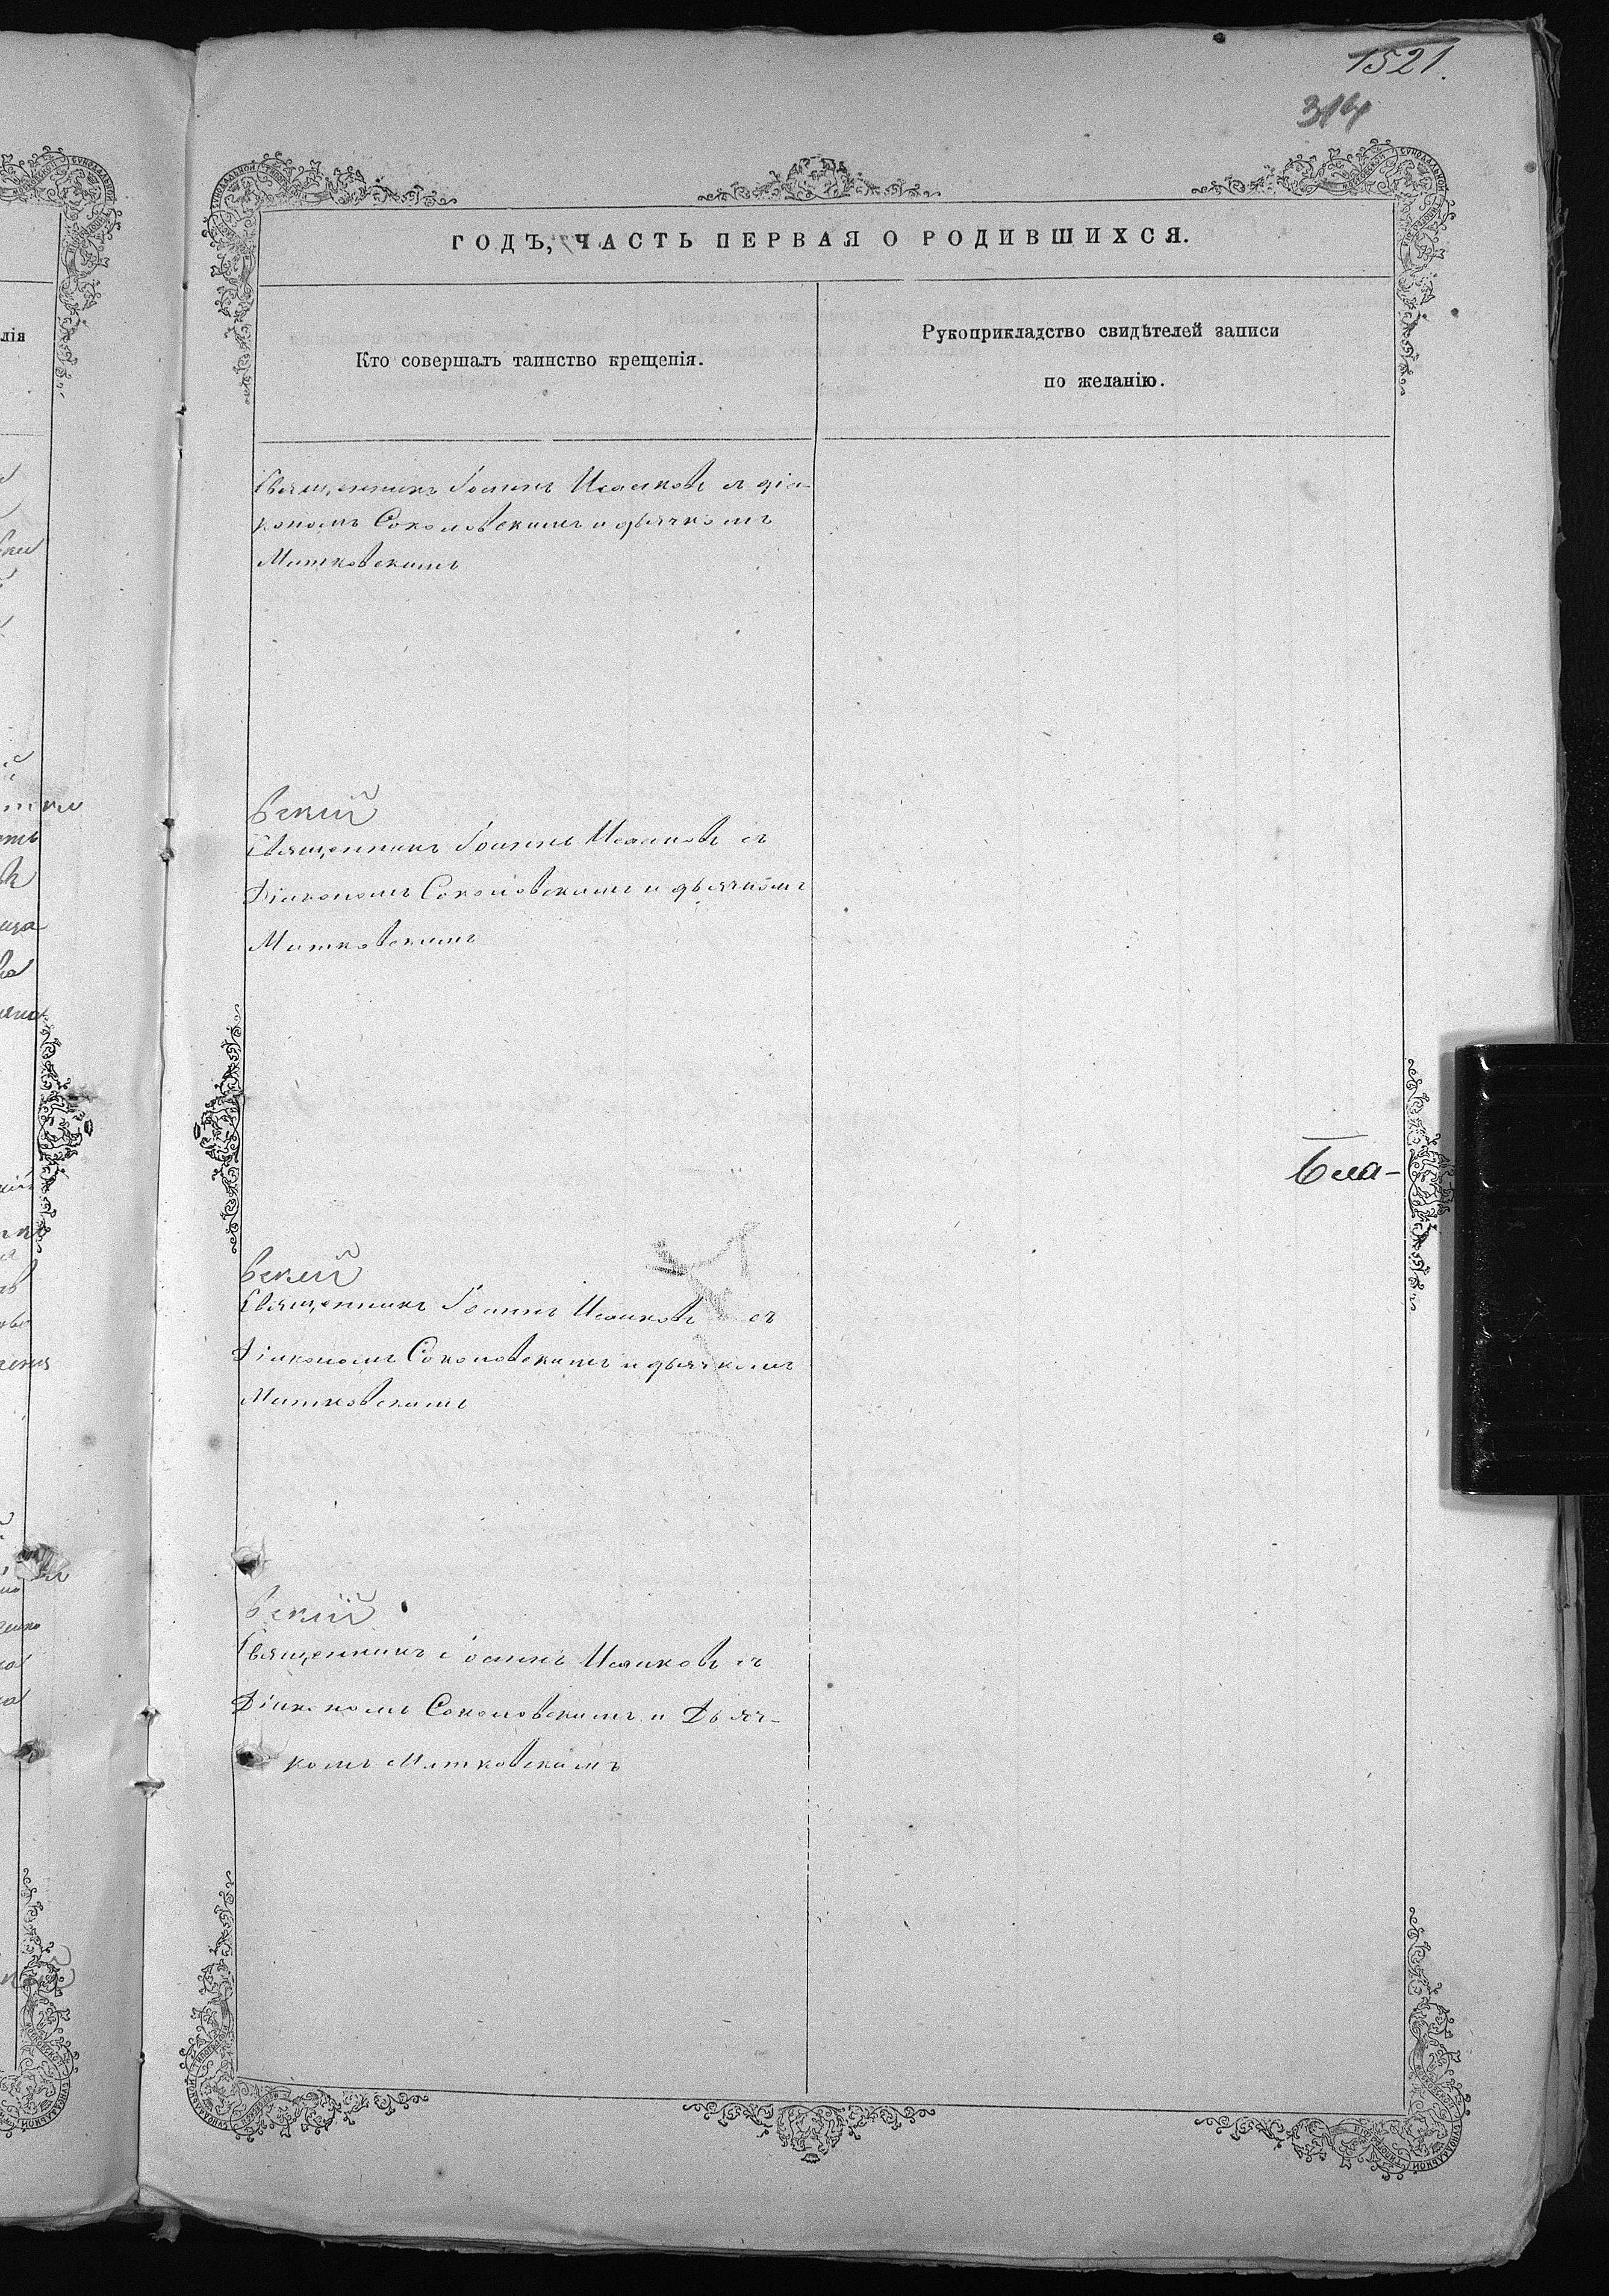 1521.
314
ГОДЪ, ЧАСТЬ ПЕРВАЯ О РОДИВШИХСЯ.
лія
Кто совершалъ таинство крещенія.
Рукоприкладство свидѣтелей записи
по желанію.
Священникъ Іоаннъ Исаковъ съ діа-
кономъ Соколовскимъ и дьячкомъ
Митковскимъ
вскій
Священникъ Іоаннъ Исаковъ съ
Діакономъ Соколовскимъ и дьячкомъ
Митковскимъ
Бла-
вскій
Священникъ Іоаннъ Исаковъ съ
Діакономъ Соколовскимъ и дьячкомъ
Митковскимъ
вскій
Священникъ Іоаннъ Исаковъ съ
Діакономъ Соколовскимъ и Дьяч-
комъ Митковскимъ